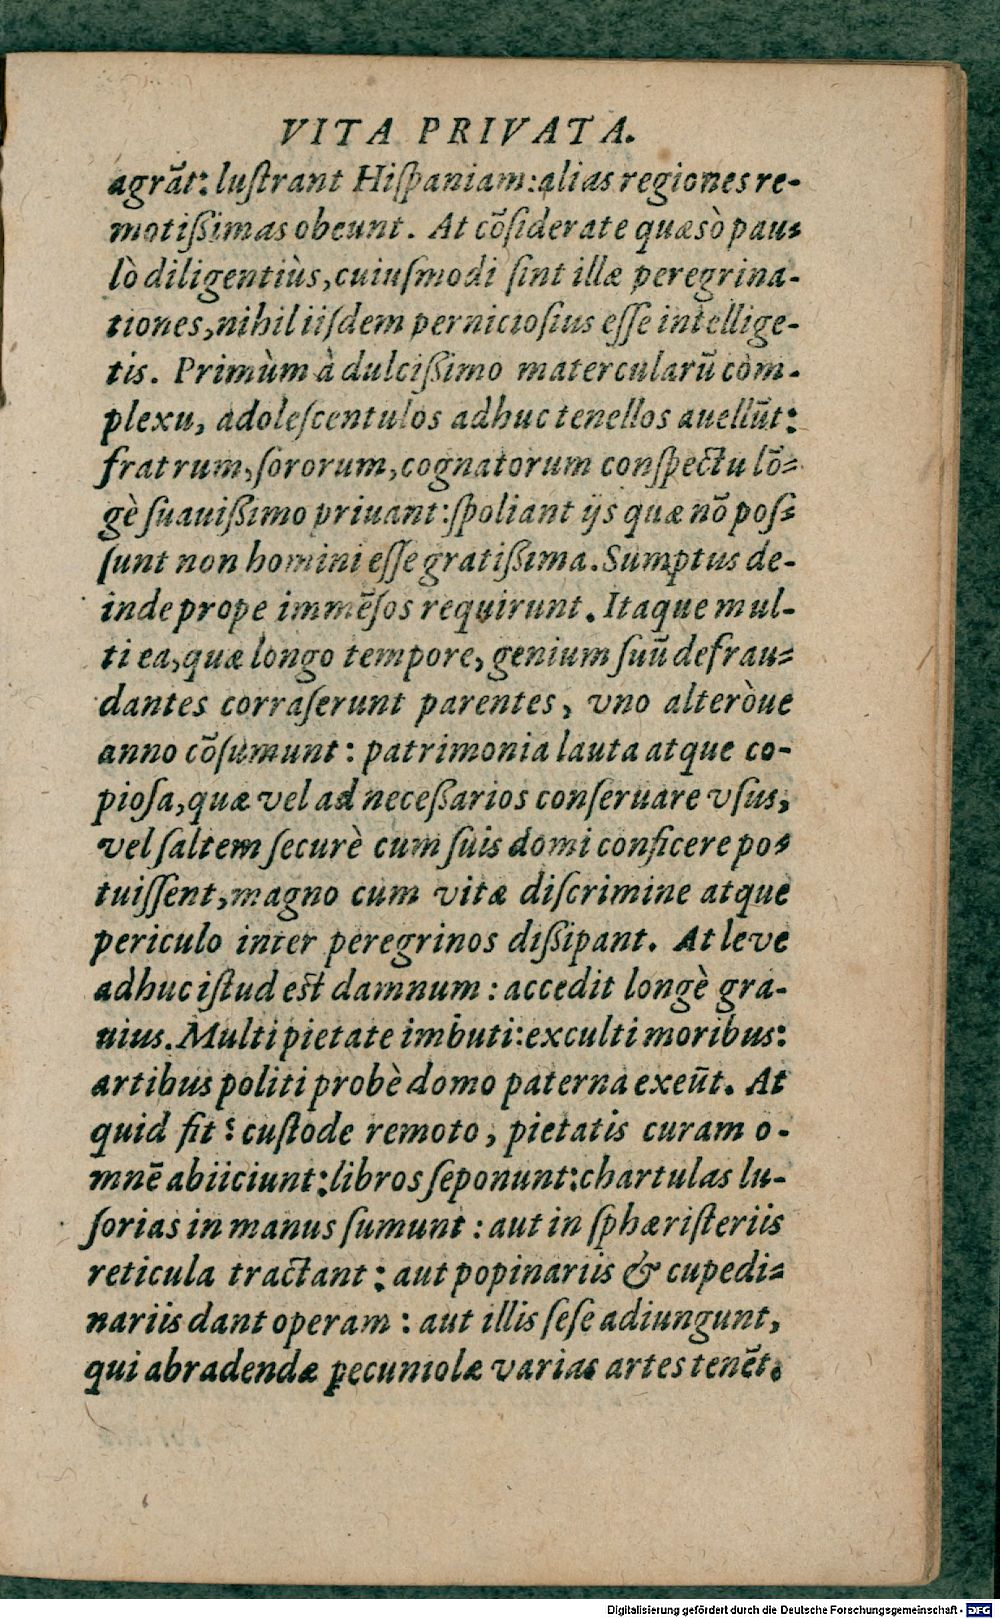 VITA PRIVATA.
agrāt: luſtrant Hiſpaniam: alias regiones re-
motiſsimas obeunt. At cōſiderate quæsò pau-
lò diligentiùs, cuiuſmodi ſint illæ peregrina-
tiones, nihil iiſdem pernicioſius eſſe intellige-
tis. Primùm à dulciſsimo matercularū com-
plexu, adoleſcentulos adhuc tenellos auellūt:
fratrum, ſororum, cognatorum conſpectu lō-
gè ſuauiſsimo priuant: ſpoliant ijs quæ nō poſ-
ſunt non homini eſſe gratiſsima. Sumptus de-
inde prope immēſos requirunt. Itaque mul-
ti ea, quæ longo tempore, genium ſuū defrau-
dantes corraſerunt parentes, vno alteròue
anno cōſumunt: patrimonia lauta atque co-
pioſa, quæ vel ad neceſsarios conſeruare vſus,
vel ſaltem ſecurè cum ſuis domi conficere po-
tuiſſent, magno cum vitæ diſcrimine atque
periculo inter peregrinos diſsipant. At leve
adhuc iſtud est damnum: accedit longè gra-
uius. Multi pietate imbuti: exculti moribus:
artibus politi probè domo paterna exeūt. At
quid fit? cuſtode remoto, pietatis curam o-
mnē abiiciunt: libros ſeponunt: chartulas lu-
ſorias in manus ſumunt: aut in ſphæriſteriis
reticula tractant: aut popinariis & cupedi-
nariis dant operam: aut illis ſeſe adiungunt,
qui abradendæ pecuniolæ varias artes tenēt.
Digitalisierung gefördert durch die Deutsche Forschungsgemeinschaft - DFG